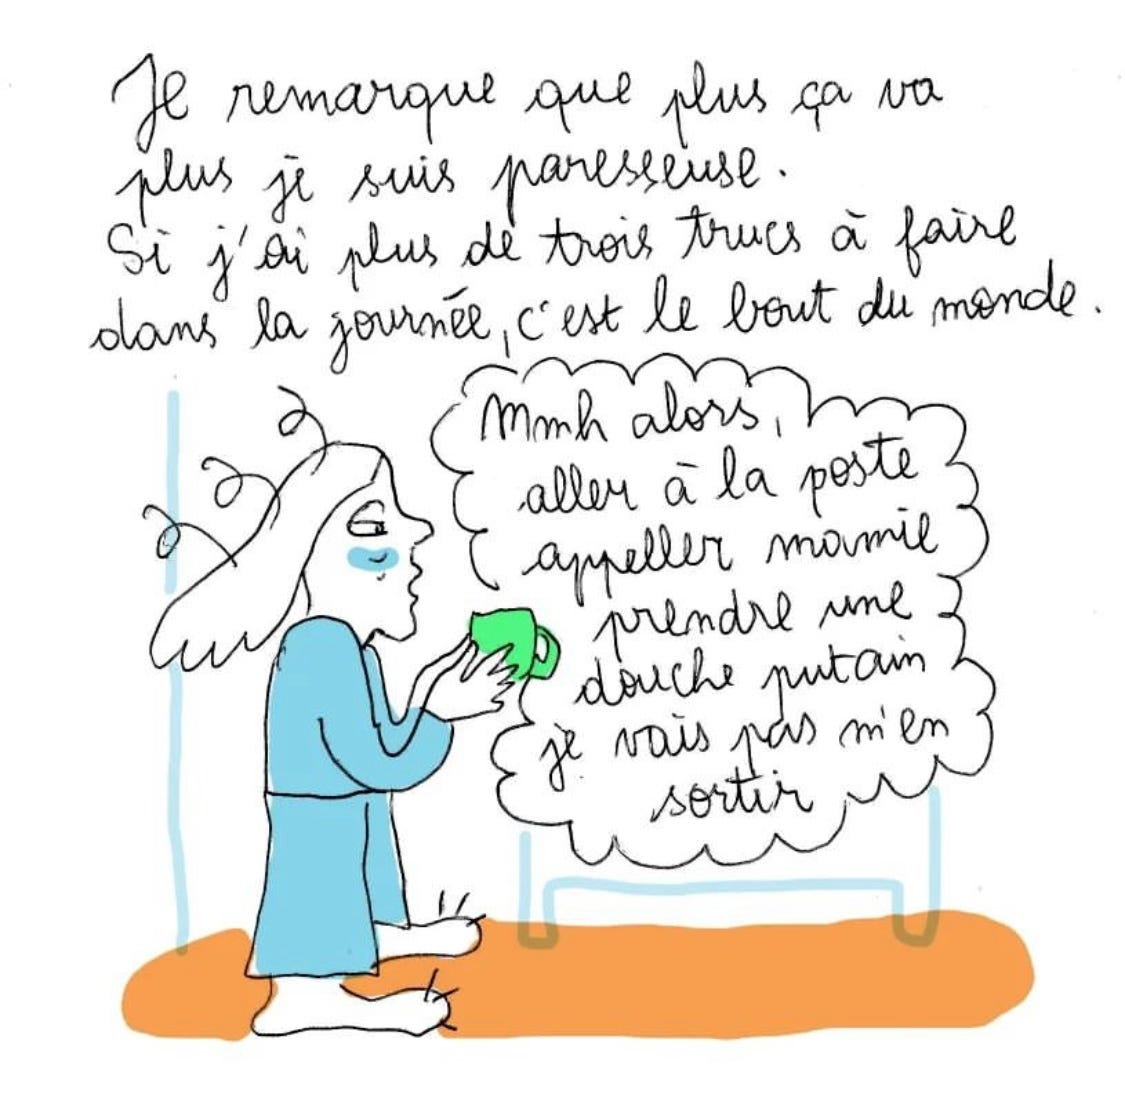 Je remarque que plus ça va
plus je suis paresseuse.
Si j'ai plus de trois trucs à faire
dans la journée, c'est le bout du monde.
Mmh alors,
aller à la poste
appeller mamie
prendre une
douche putain
je vais pas m'en
sortir